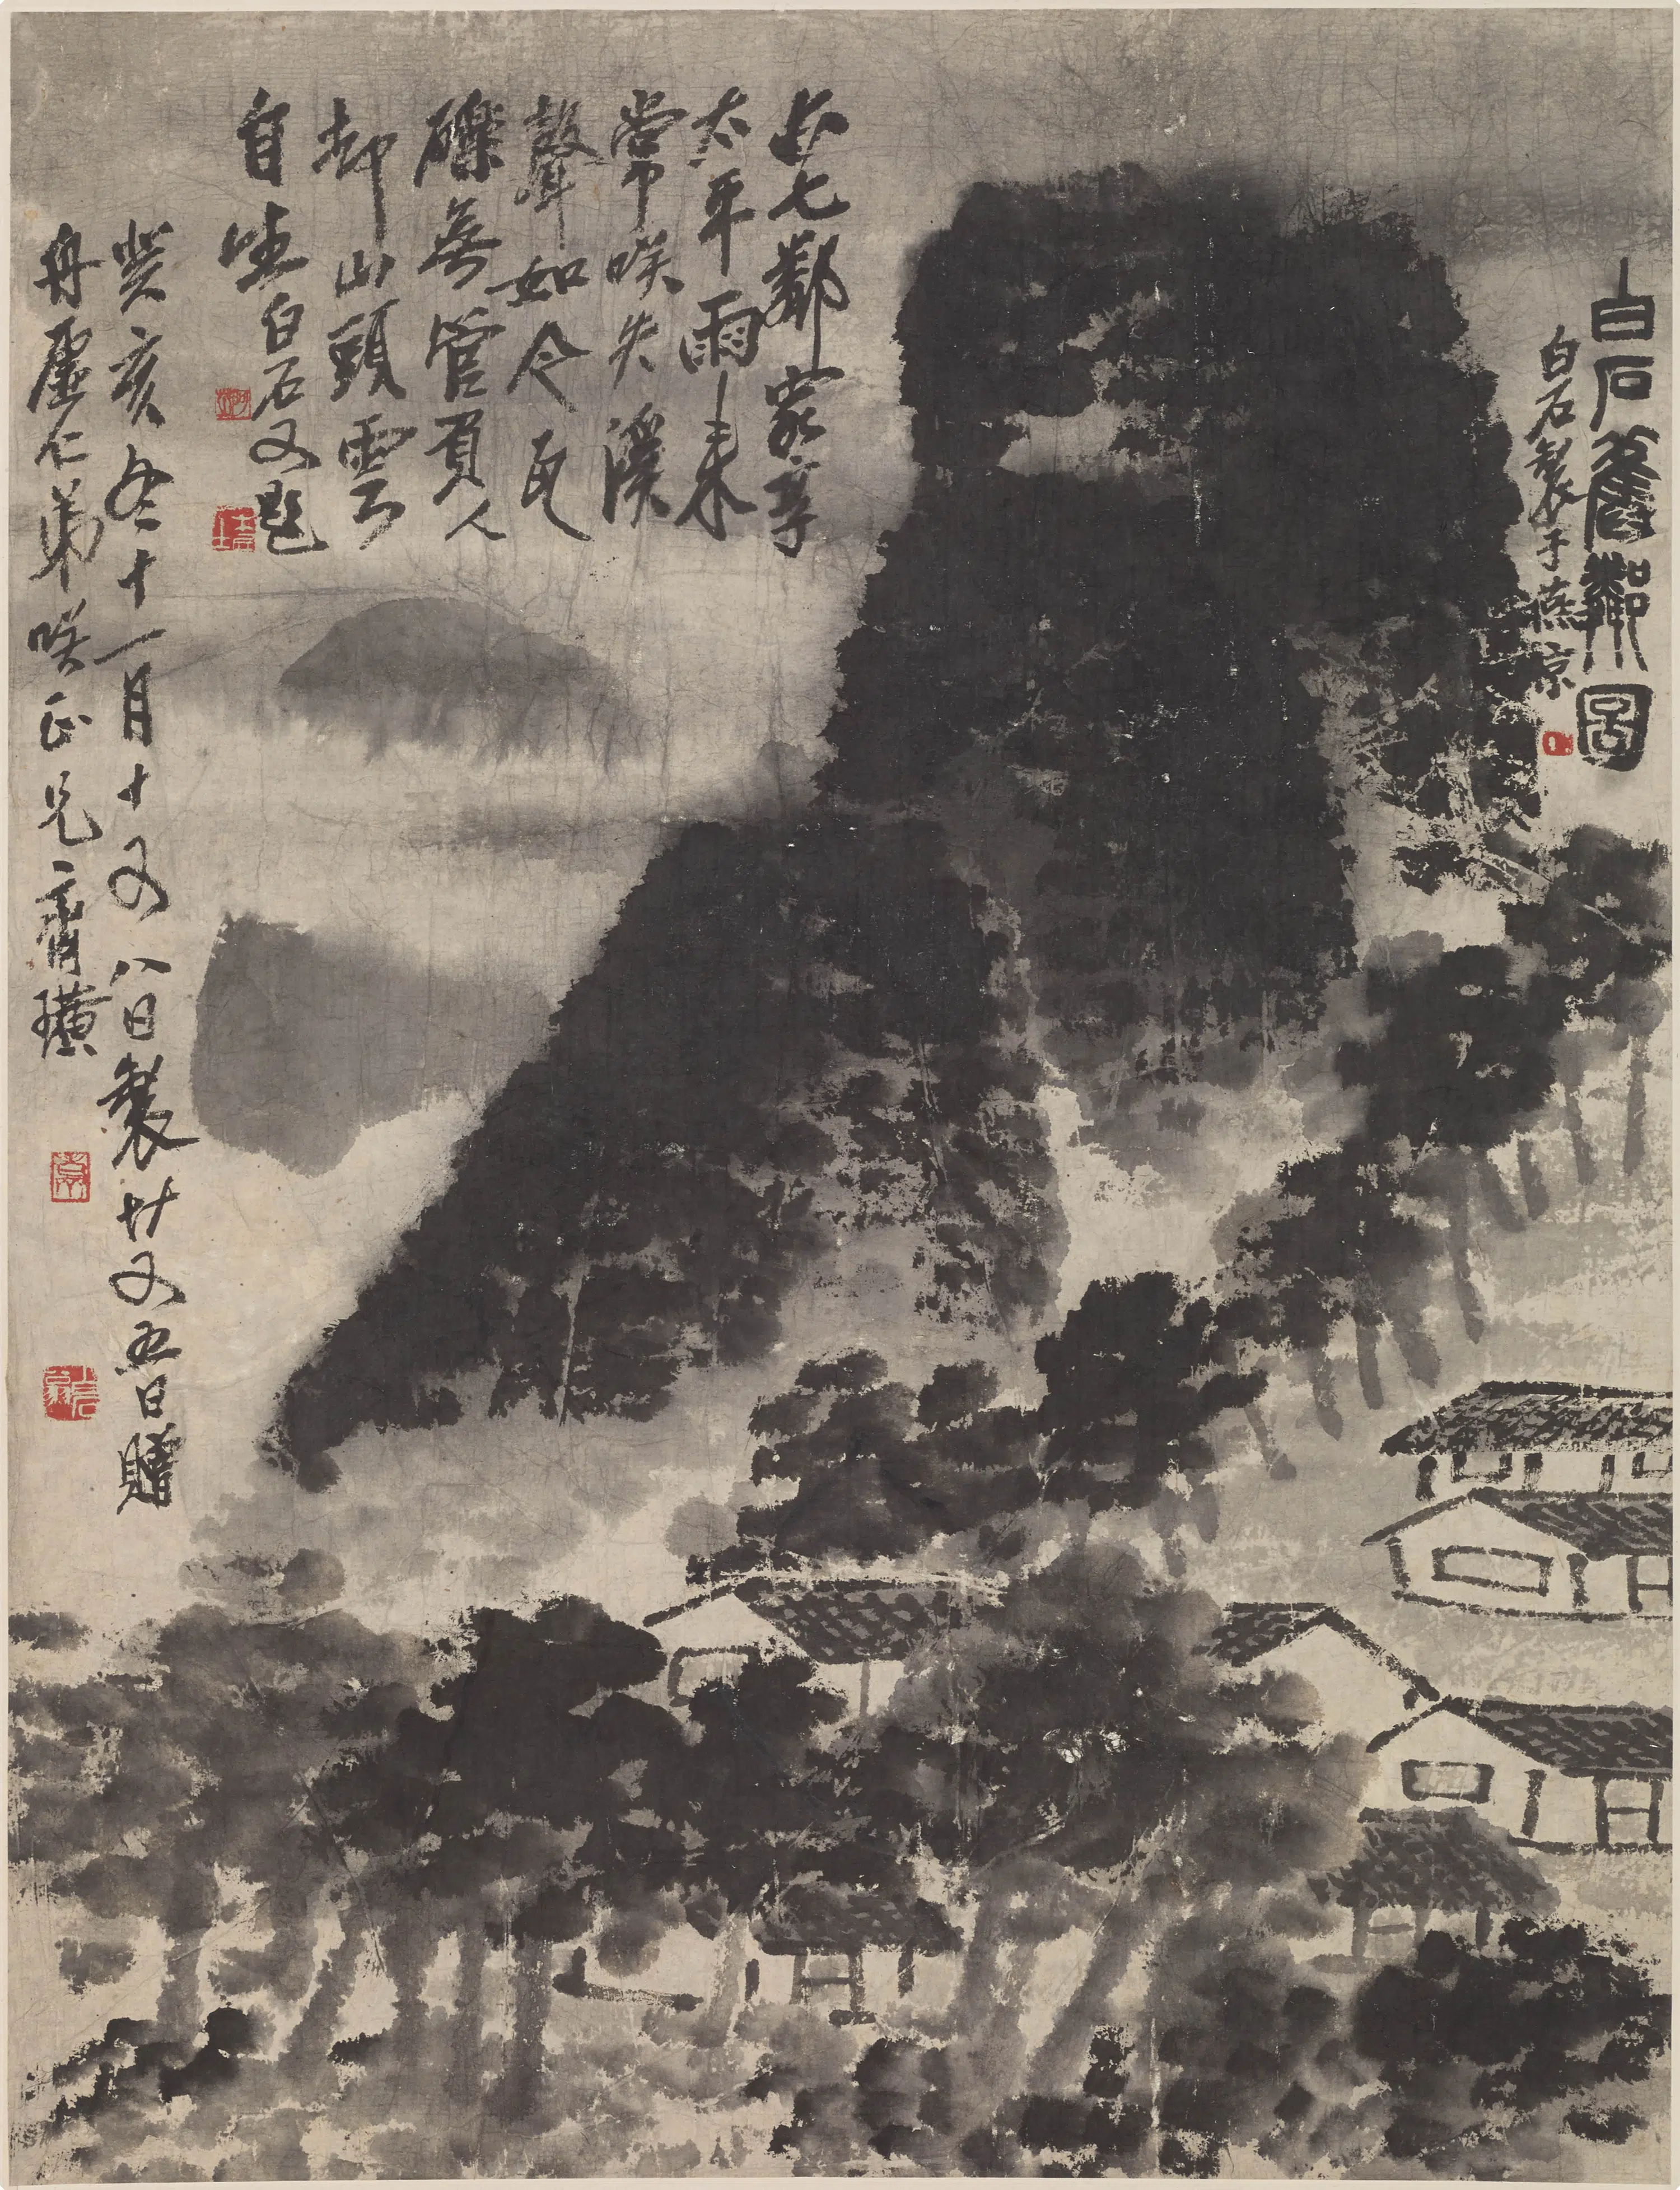 白石舊鄰圖
白石製于燕京
七鄰家享
太平雨來
常咲失溪
聲如今瓦
礫無管人
却山頭雲
自生白石又題
癸亥冬十一月十又八日製廿又五日贈
舟虛仁弟咲正兄齊璜